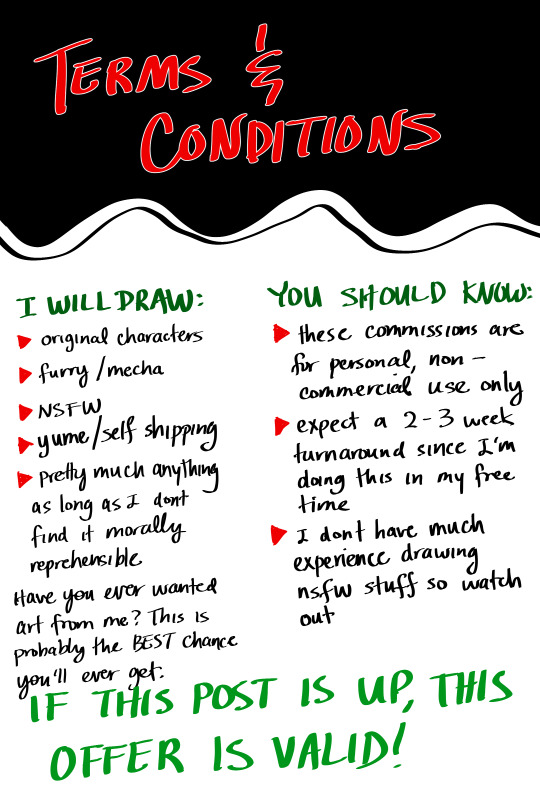 TERMS &
CONDITIONS
I WILL DRAW:
original characters
furry/mecha
NSFW
yume/self shipping
pretty much anything
as long as I dont
find it morally
reprehensible
Have you ever wanted
art from me? This is
probably the BEST chance
you'll ever get.
YOU SHOULD KNOW:
these commissions are
for personal, non-
commercial use only
expect a 2-3 week
turnaround since I'm
doing this in my free
time
I dont have much
experience drawing
nsfw stuff so watch
out
IF THIS POST IS UP, THIS
OFFER IS VALID!